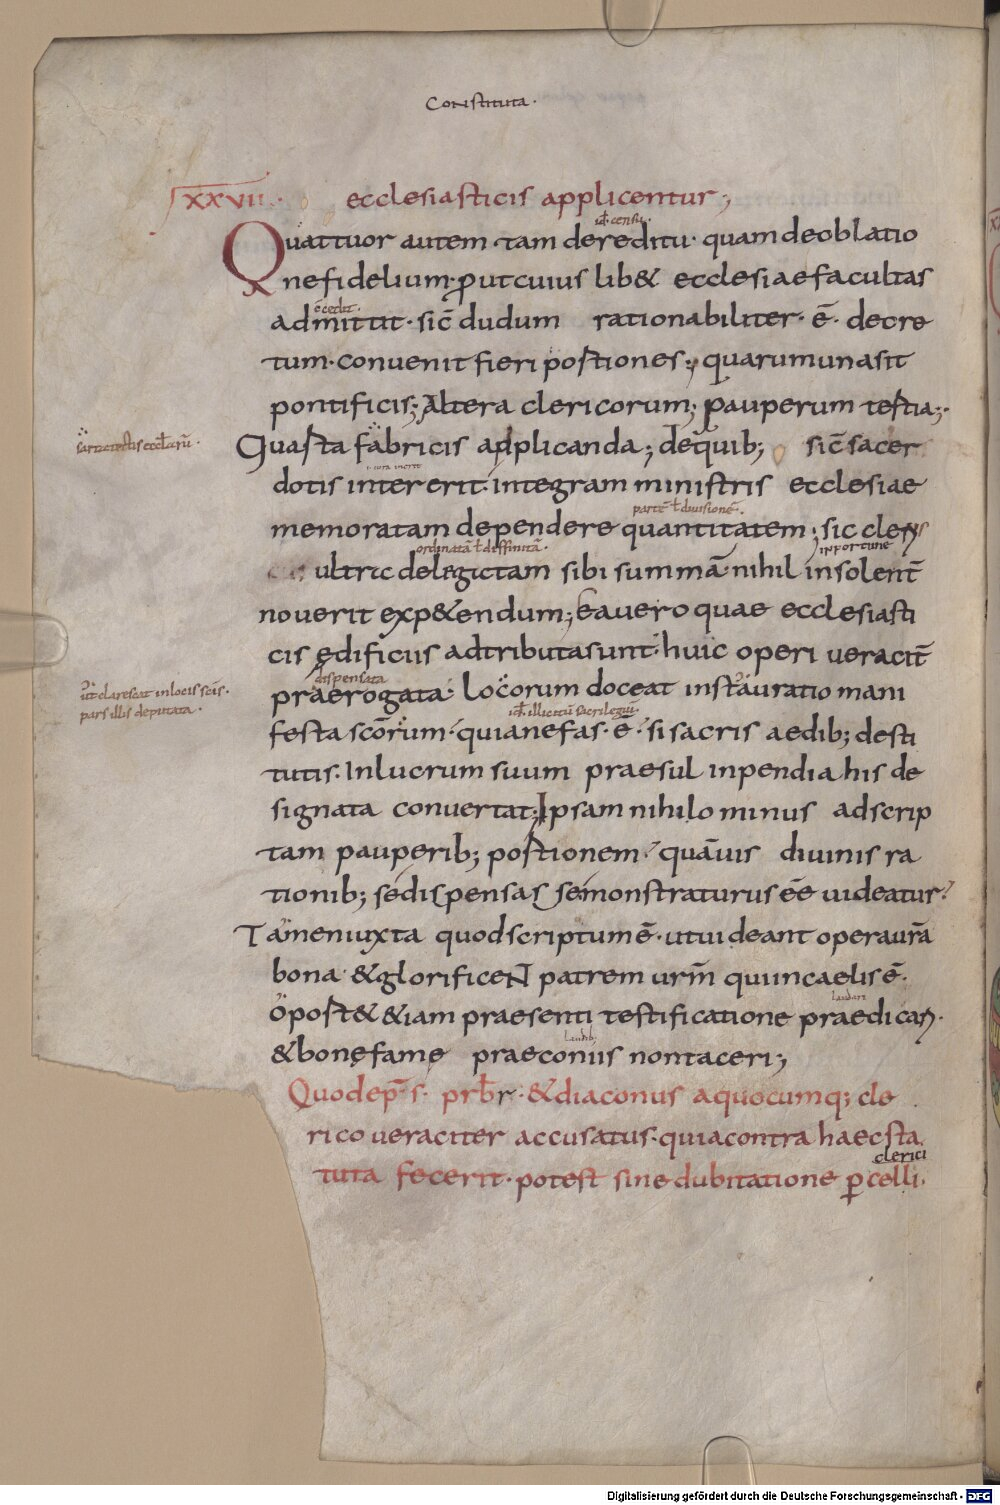 Constituta.
XXVII. ecclesiasticis applicentur;
id. censu.
Quattuor autem tam dereditu. quam deoblatio
nefidelium. Prout cuius lib& ecclesiaefacultas
c̄cedit.
admittit. sic̄ dudum rationabiliter. ē. decre
tum. convenit fieri postiones; quarumunasit
pontificis; Altera clericorum; Pauperum testia;
Quasta fabricis applicanda; dequib; sic̄ sacer
sartatectis eccl̄arū.
dotis intererit. integram ministris ecclesiae
partē ł divisionē.
memoratam dependere quantitatem; sic cleri
ordinatā ł deffinitā. inportune
cus ultra delegictam sibi summā. nihil insolent̄
noverit exp&endum; Eavero quae ecclesiasti
cis ędificiis adtributasunt. huic operi veracit̄
dispensata
praerogata. locorum doceat instauratio mani
ut clarescat inlocis scīs.
pars illis deputata.
id. illicitū sacrilegiū.
festa scōrum. quianefas. ē. sisacris aedib; desti
tutis. Inlucrum suum praesul inpendia his de
signata convertat; Ipsam nihilominus adscrip
tam pauperib; postionem. quāvis divinis ra
tionib; sedispensas semonstraturus ēe videatur.
Tameniuxta quodscriptum ē. utvideant operavrā
bona. &glorificeNT patrem vrm̄ quiincaelis ē.
laudari
oport& &iam praesenti testificatione praedicari.
laudib;
&bonęfamę praeconiis nontaceri;
Quodep̄s. prb̄r. &diaconus aquocumq; cle
rico veraciter accusatus. quiacontra haecsta
clerici
tuta fecerit. potest sine dubitatione pcelli.
Digitalisierung gefördert durch die Deutsche Forschungsgemeinschaft - DFG